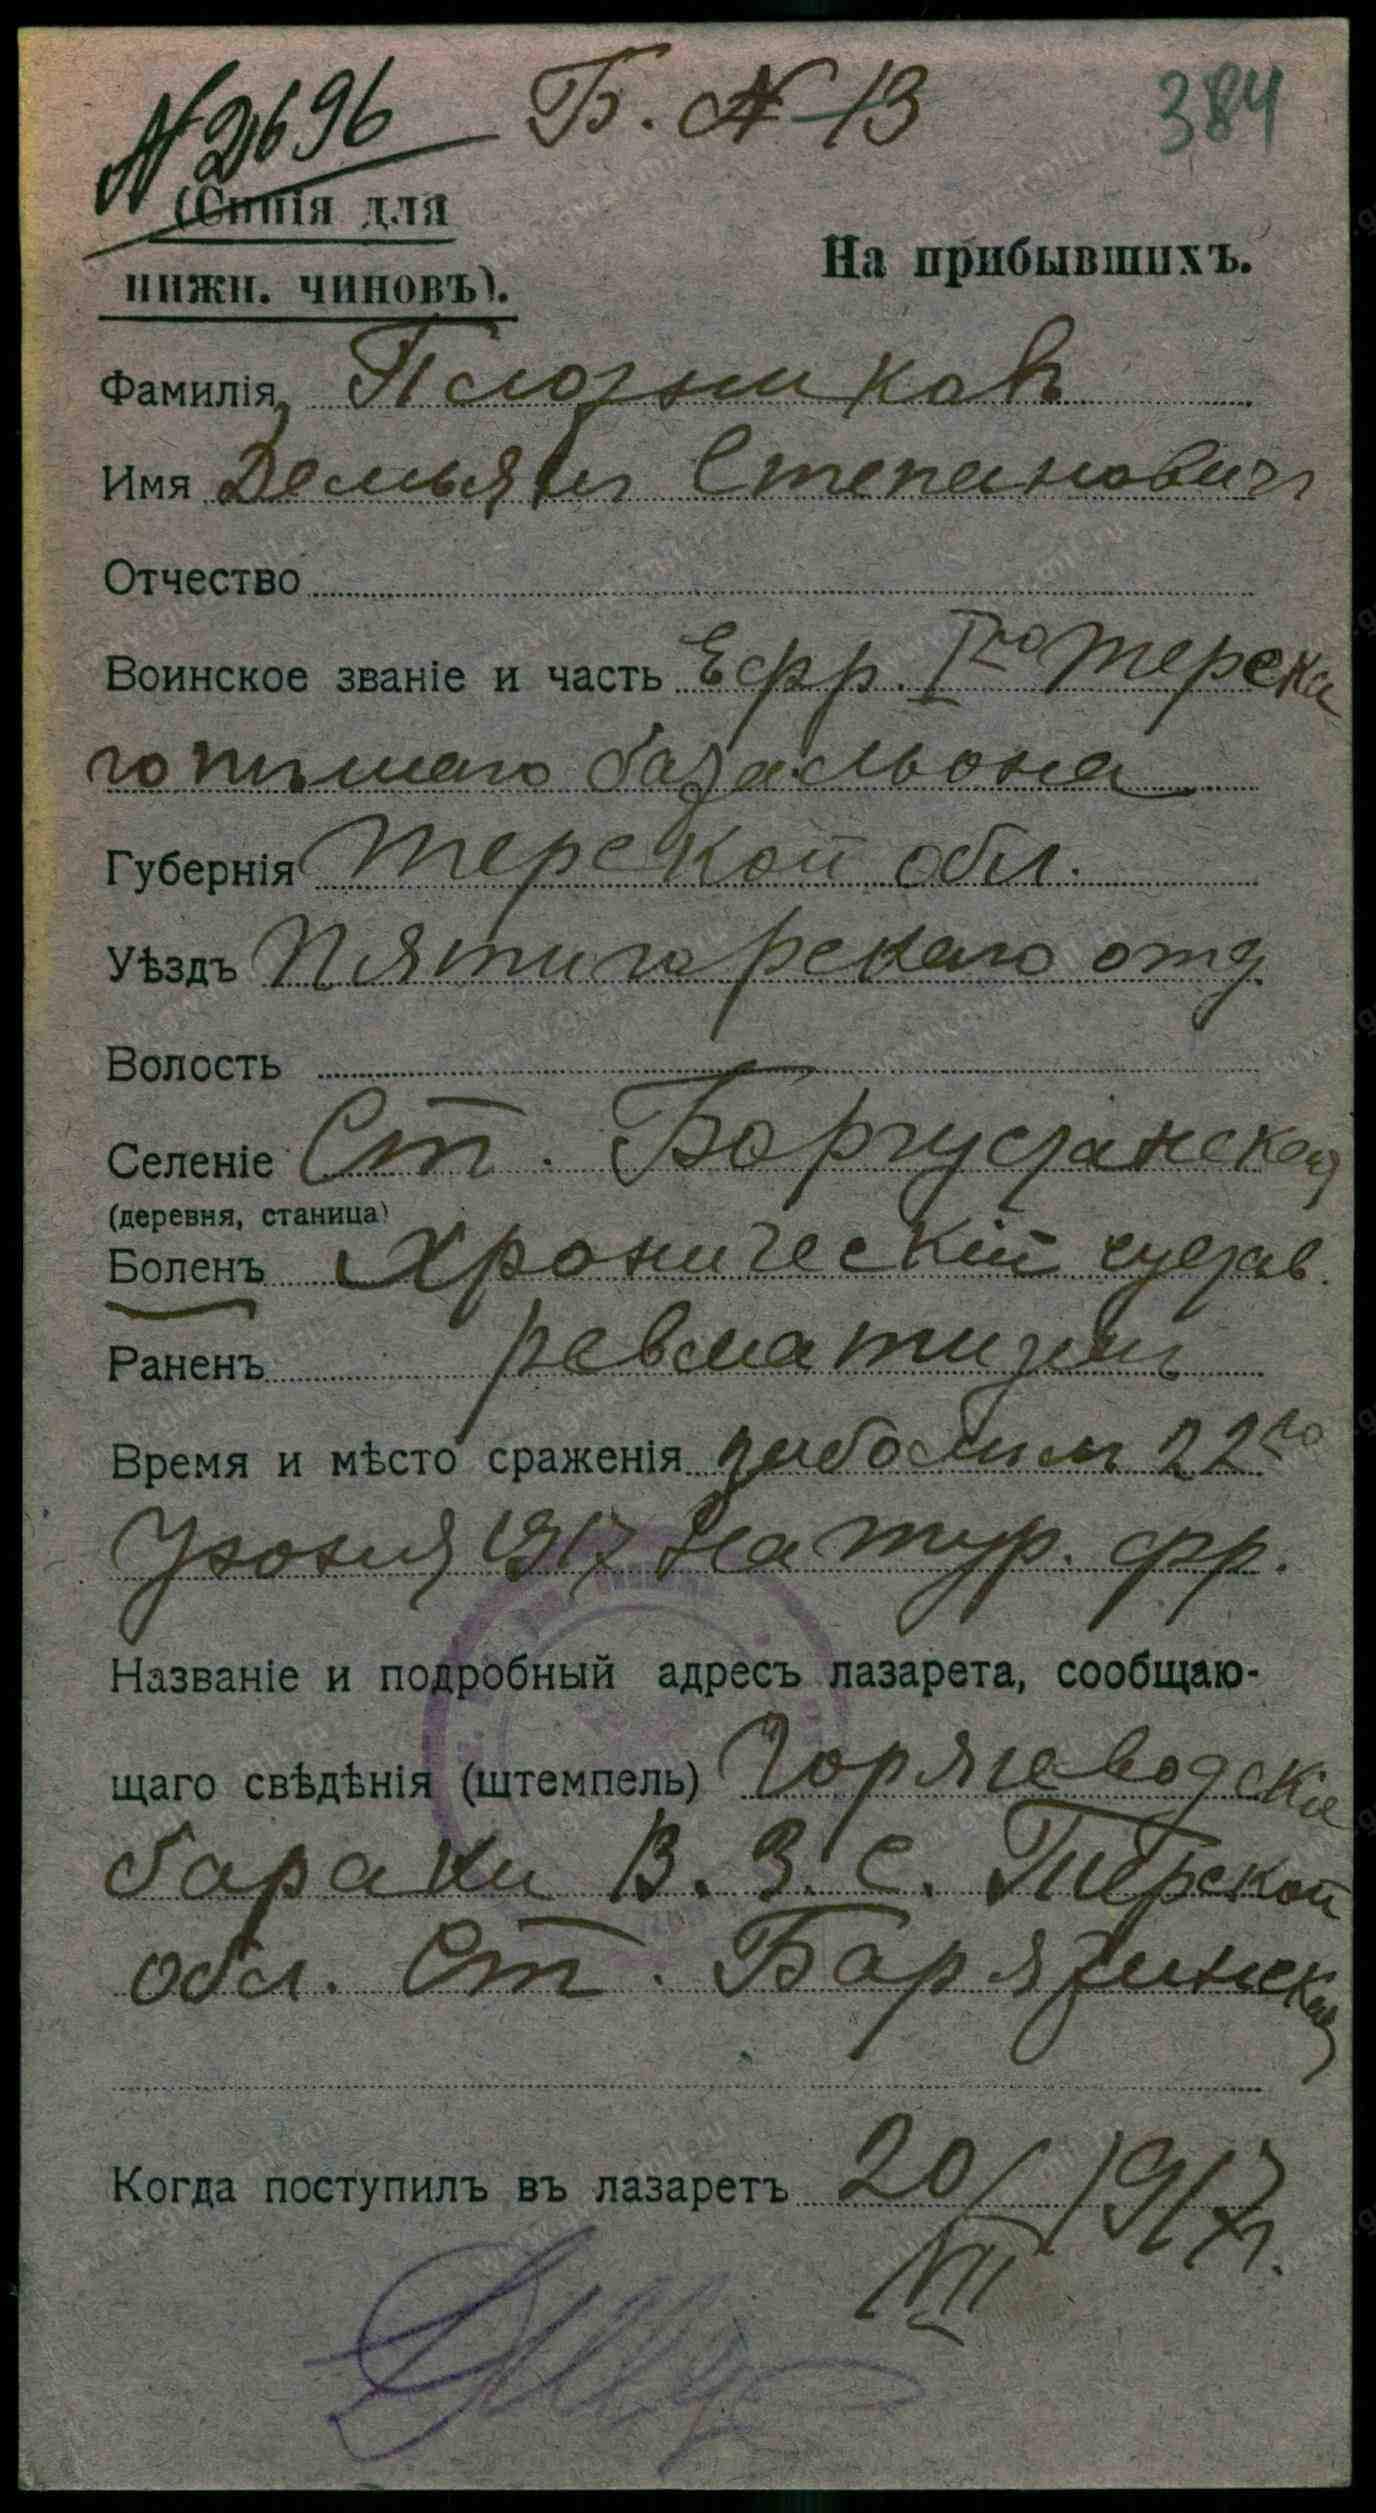 № 2696 Б. № 13 384
(Синія для
нижн. чиновъ).
На прибывшихъ.
Фамилія Плотниковъ
Имя Демьянъ Степановичъ
Отчество
Воинское званіе и часть Ефр. I го Терска
го пѣшаго батальона
Губернія Терской обл.
Уѣздъ Пятигорскаго отд
Волость
Селеніе Ст. Боргустанской
(деревня, станица)
Боленъ Хроническій сустав.
Раненъ ревматизмъ
Время и мѣсто сраженія заболѣлъ 22 го
Іюня 1917 на тур. фр.
Названіе и подробный адресъ лазарета, сообщаю-
щаго свѣдѣнія (штемпель) Горячеводскіе
бараки В. З. С. Терской
обл. Ст. Барятинской
Когда поступилъ въ лазаретъ 20/VII 1917 г.